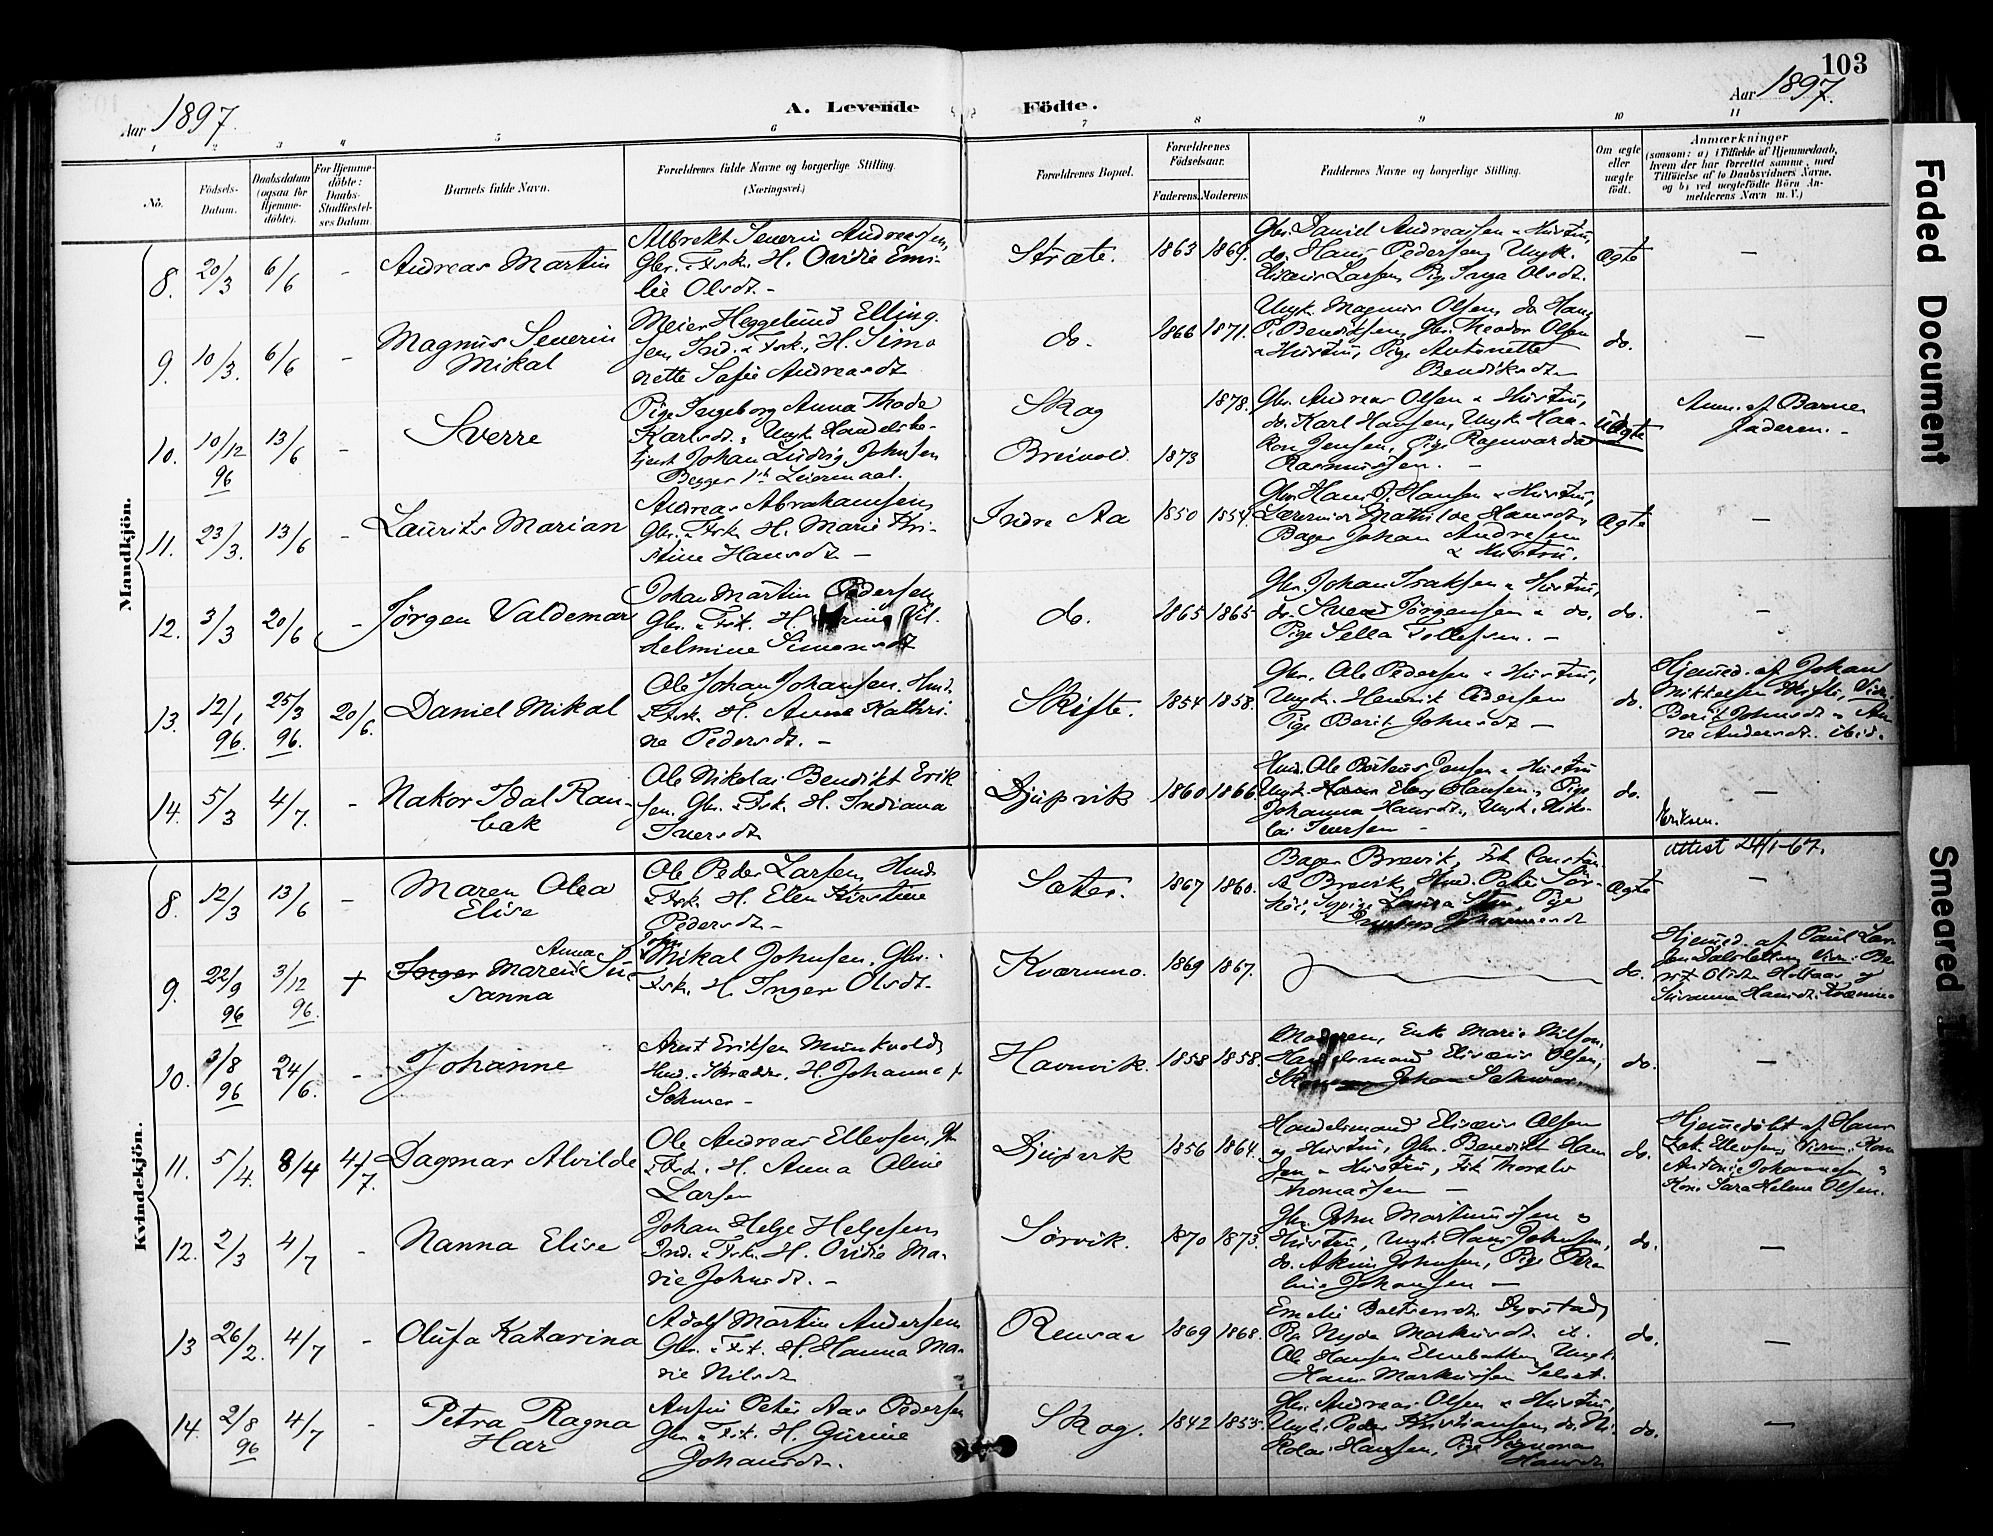 103
Aar 1897.
A. Levende Födte.
Aar 1897.
1 2 3 4 5 6 7 8 9 10 11
No.
Födsels-Datum.
Daabsdatum (ogsaa for Hjemme-döbte).
For Hjemme-döbte: Daabs-Stadfæstel-ses Datum.
Barnets fulde Navn.
Forældrenes fulde Navne og borgerlige Stilling. (Næringsvei.)
Forældrenes Bopæl.
Forældrenes Födselsaar.
Faderens. Moderens.
Faddernes Navne og borgerlige Stilling.
Om ægte eller uægte födt.
Anmærkninger
(saasom: a) i Tilfælde af Hjemmedaab,
hvem der har forrettet samme, med
Tilföielse af to Daabsvidners Navne,
og b) ved uægtefödte Börn An-
melderens Navn m. V.)
Mandkjön.
8. 20/3 6/6 - Andreas Martin
Albrekt Severin Andreassen,
Gbr. & Fsk. H. Ovidie Emi-
lie Olsdt. -
Stræte. 1863 1869.
Gbr. Daniel Andreassen & Hustru,
do. Hans Pedersen, Ungk.
Elisæus Larsen, Pige Inga Olsdt.
Ægte -
9. 10/3. 6/6 - Magnus Severin
Mikal
Meier Heggelund Elling-
sen, Ind. & Fsk., H. Simo
nette Sofie Andreasdt
do. 1866 1871.
Ungk. Magnus Olsen, do Hans
P. Bendiksen, Gbr. Theodor Olsen
& Hustru, Pige Antonette
Bendiksdt.
do. -
10. 10/12 96 13/6 - Sverre
Pige Ingeborg Anna Thode
Karlsdt. & Ungk. Handelsbe-
tjent Johan Ludvig Johnsen
Begges 1ste Leiermaal.
Skog 1878.
Breivold. 1873
Gbr. Andreas Olsen & Hustru,
do. Karl Hansen, Ungk. Haa-
kon Jensen, Pige Ragnvarda
Rasmussen. -
Uægte
Anm. af Barne
faderen. -
11. 23/3. 13/6 - Laurits Marian
Andreas Abrahamsen,
Gbr. & Fsk. H. Marie Kri-
stine Hansdt. -
Indre Aa 1850 1854.
Gbr. Hans J. Hansen & Hustru,
Lærerinde Mathilde Hansdt.,
Bager Johan Andresen
& Hustru.
Ægte -
12. 3/3 20/6 - Jørgen Valdemar
Johan Martin Pedersen
Gbr. & Fsk. H. Vil-
helmine Simonsdt
do. 1865 1865.
Gbr. Johan Isaksen & Hustru,
do. Svend Jørgensen & do.
Pige Sella Tollefsen. -
do. -
13. 12/1 96. 25/3 96. 20/6. Daniel Mikal
Ole Johan Johansen. Hmd.
& Fsk. H. Anne Kathri-
ne Pedersdt. -
Skifte. 1854 1858.
Gbr. Ole Pedersen & Hustru,
Ungk. Henrik Pedersen
Pige Berit Johnsdt -
do.
Hjemmed. af Johan
Mikkelsen Skifte, Vidn.
Berit Johnsdt & An-
ne Andersdt. ibid.
14. 5/3 4/7. - Nakor Idal Ran-
bæk
Ole Nikolai Bendikt Erik
sen, Gbr. & Fsk. H. Indiana
Iversdt
Djupvik 1860 1866
Hmd. Ole Jensen & Hustru
Ungk. Hansen, Pige
Johanna Hansdt., Ungk. Niko-
lai Iversen -
do. -
Eriksen.
Attest 24/1-67.
Kvindekjön.
8. 12/3 13/6 - Maren Olea
Elise
Ole Peder Larsen, Hmd.
& Fsk. H. Elen Kirstine
Pedersdt. -
Sæter. 1867 1860.
Bager Brevik, Frk. Constan-
se Brevik, Hmd. Peter Sør-
Pige
Ægte -
9. 22/9 96 3/12 96. + Inger Anna Maren Su-
sanna
John Mikal Johnsen, Gbr. &
Fsk., H. Inger Olsdt.
Kværnmo. 1869 1867.
do.
Hjemmed. af Paul Lar-
sen Vidn: Be-
rit Olsdt. og
Susanna Hansdt. Kværnmo
10. 3/8 96 24/6. - Johanne
Arnt Eriksen Munkvold,
Hmd. & Skræder. H. Johanna f.
Sommer -
Havnvik. 1858 1858.
Moderen, Enke Marie Nilsen,
Handelsmand Elisæus Olsen,
Johan
do. -
11. 5/4. 8/4 4/7. Dagmar Alvilde
Ole Andreas Ellevsen, Gbr
& Fsk. H. Anna Oline
Larsen
Djupvik 1856 1864.
Handelsmand Elisæus Olsen
og Hustru, Gbr. Benedikt Han
sen & Hustru, Frk Thomassen -
do.
Hjemmedøbt af Hans
Ellevsen, Vidn. Kone
Antonie Johannesen &
Kone Sara Helene Olsen.
12. 2/3 4/7 - Nanna Elise
Johan Helge Helgesen,
Ind. & Fsk. H. Ovidie Ma-
rie Johnsdt. -
Sørvik. 1870 1873.
Gbr. John Martinussen &
Hustru, Ungk. Hans Johnsen,
do. Akim Johnsen, Pige Pera-
line Johansen -
do. -
13 26/2. 4/7 - Olufa Katarina
Adolf Martin Andersen
Gbr. & Fsk. H. Hanna Ma-
rie Nilsdt
Rensaa 1869 1868.
Emelie Dyrstad,
Pige Nyda Markusdt ib.
Ole Hansen Elvebakken, Ungk.
Hans Markussen Selset.
do. -
14. 2/8 96 4/7 - Petra Ragna
Har
Ansin Peter Aas Pedersen
Gbr & Fsk. H. Gurine
Johansdt.
Skog. 1842 1853.
Gbr. Andreas Olsen & Hustru,
Ungk. Peder Kristiansen, do. Ni-
kolai Hansen, Pige Signora
Hansdt
do. -
Faded Document
Smeared